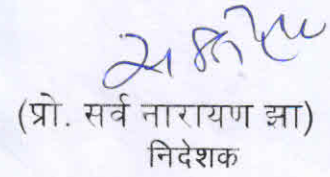 (प्रो. सर्व नारायण झा)
निदेशक